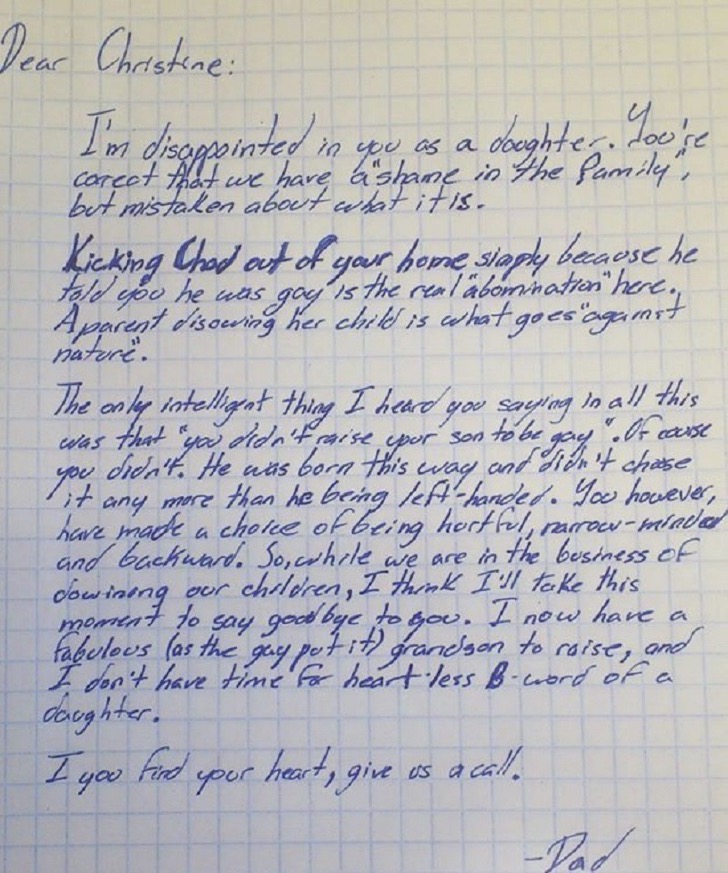 Dear Christine:
I'm disappointed in you as a daughter. You're
correct that we have a "shame in the family",
but mistaken about what it is.
Kicking Chad out of your home simply because he
told you he was gay is the real "abomination" here.
A parent disowing her child is what goes "against
nature".
The only intelligent thing I heard you saying in all this
was that "you didn't raise your son to be gay". Of course
you didn't. He was born this way and didn't choose
it any more than he being left-handed. You however,
have made a choice of being hurtful, narrow-minded
and backward. So, while we are in the business of
dowining our children, I think I'll take this
moment to say goodbye to you. I now have a
fabulous (as the gay put it) grandson to raise, and
I don't have time for heart-less B-word of a
daughter.
I you find your heart, give us a call.
-Dad